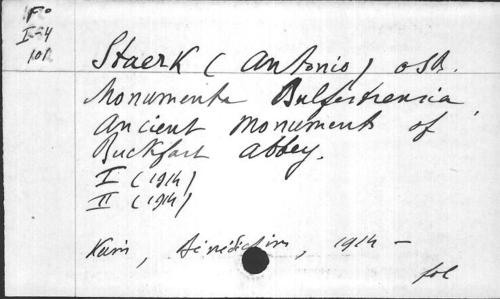 F°
I-4
101
Staerk (Antonio) osb.
Monumenta Bulfestrensia
Ancient Monuments of
Buckfast Abbey.
I (1914)
II (1914)
Kain, Bénédictins, 1914 -
fol